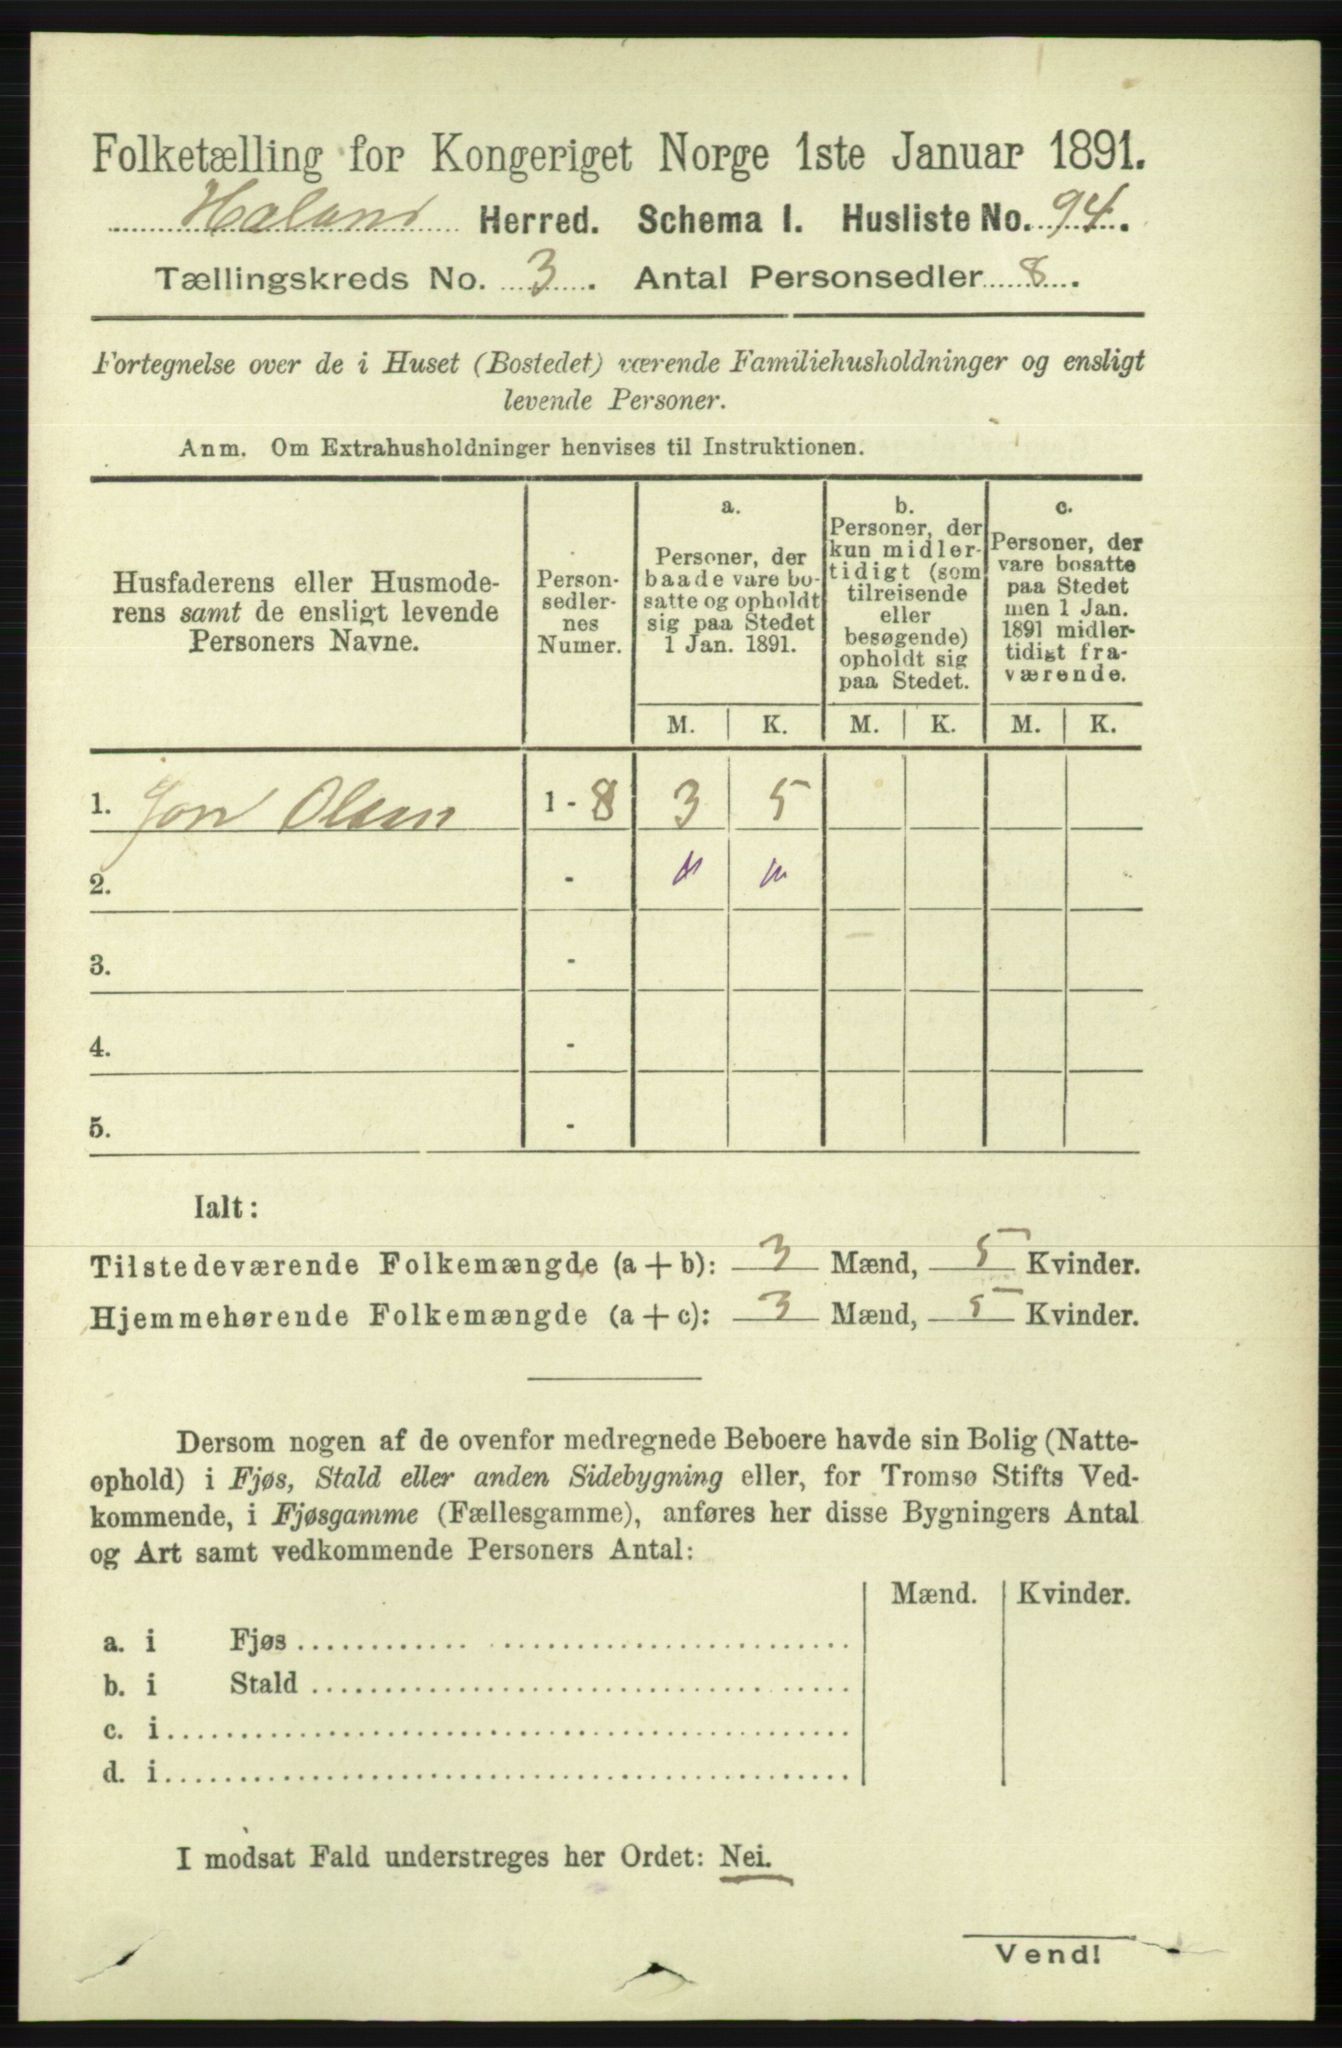 Folketælling for Kongeriget Norge 1ste Januar 1891.
Haland Herred. Schema I. Husliste No. 94.
Tællingskreds No. 3. Antal Personsedler 8.
Fortegnelse over de i Huset (Bostedet) værende Familiehusholdninger og ensligt
levende Personer.
Anm. Om Extrahusholdninger henvises til Instruktionen.
Husfaderens eller Husmode-
rens samt de ensligt levende
Personers Navne.
Person-
sedler-
nes
Numer.
a.
Personer, der
baade vare bo-
satte og opholdt
sig paa Stedet
1 Jan. 1891.
b.
Personer, der
kun midler-
tidigt (som
tilreisende
eller
besøgende)
opholdt sig
paa Stedet.
c.
Personer, der
vare bosatte
paa Stedet
men 1 Jan.
1891 midler-
tidigt fra-
værende.
M. K. M. K. M. K.
1. Jon Olsen 1 - 8 3 5
2. -
3. -
4. -
5. -
Ialt:
Tilstedeværende Folkemængde (a + b): 3 Mænd, 5 Kvinder.
Hjemmehørende Folkemængde (a + c): 3 Mænd, 5 Kvinder.
Dersom nogen af de ovenfor medregnede Beboere havde sin Bolig (Natte-
ophold) i Fjøs, Stald eller anden Sidebygning eller, for Tromsø Stifts Ved-
kommende, i Fjøsgamme (Fællesgamme), anføres her disse Bygningers Antal
og Art samt vedkommende Personers Antal:
Mænd. Kvinder.
a. i Fjøs
b. i Stald
c. i
d. i
I modsat Fald understreges her Ordet: Nei.
Vend!